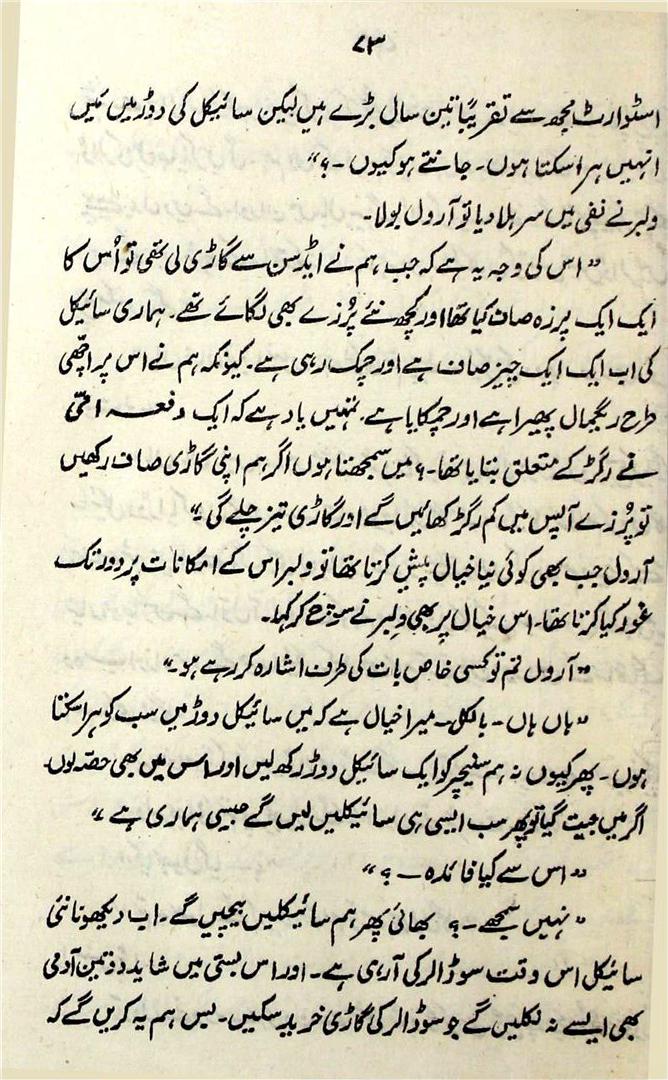 ۷۳
اسٹوارٹ مجھ سے تقریباً تین سال بڑے ہیں لیکن سائیکل کی دوڑ میں میں
انہیں ہرا سکتا ہوں۔ جانتے ہو کیوں۔؟“
ولبر نے نفی میں سر ہلا دیا تو آرول بولا۔
”اس کی وجہ یہ ہے کہ جب ہم نے ایڈسن سے گاڑی لی تھی تو اُس کا
ایک ایک پرزہ صاف کیا تھا اور کچھ نئے پُرزے بھی لگائے تھے۔ ہماری سائیکل
کی اب ایک ایک چیز صاف ہے اور چمک رہی ہے۔ کیونکہ ہم نے اس پر اچھی
طرح ریگمال پھیرا ہے اور چمکایا ہے۔ تمہیں یاد ہے کہ ایک دفعہ امّی
نے رگڑ کے متعلق بتایا تھا۔؟ میں سمجھتا ہوں اگر ہم اپنی گاڑی صاف رکھیں
تو پُرزے آپس میں کم رگڑ کھائیں گے اور گاڑی تیز چلے گی۔“
آرول جب بھی کوئی نیا خیال پیش کرتا تھا تو ولبر اس کے امکانات پر دور تک
غور کیا کرتا تھا۔ اس خیال پر بھی ولبر نے سوچ کر کہا۔
”آرول تم تو کسی خاص بات کی طرف اشارہ کر رہے ہو۔“
”ہاں ہاں۔ بالکل۔ میرا خیال ہے کہ میں سائیکل دوڑ میں سب کو ہرا سکتا
ہوں۔ پھر کیوں نہ ہم سنیچر کو ایک سائیکل دوڑ رکھ لیں اور اس میں بھی حصّہ لوں۔
اگر میں جیت گیا تو پھر سب ایسی ہی سائیکلیں لیں گے جیسی ہماری ہے“
”اس سے کیا فائدہ۔؟“
”نہیں سمجھے۔؟ بھائی پھر ہم سائیکلیں بیچیں گے۔ اب دیکھو نا نئی
سائیکل اس وقت سو ڈالر کی آ رہی ہے۔ اور اس بستی میں شاید دو تین آدمی
بھی ایسے نہ نکلیں گے جو سو ڈالر کی گاڑی خرید سکیں۔ بس ہم یہ کریں گے کہ